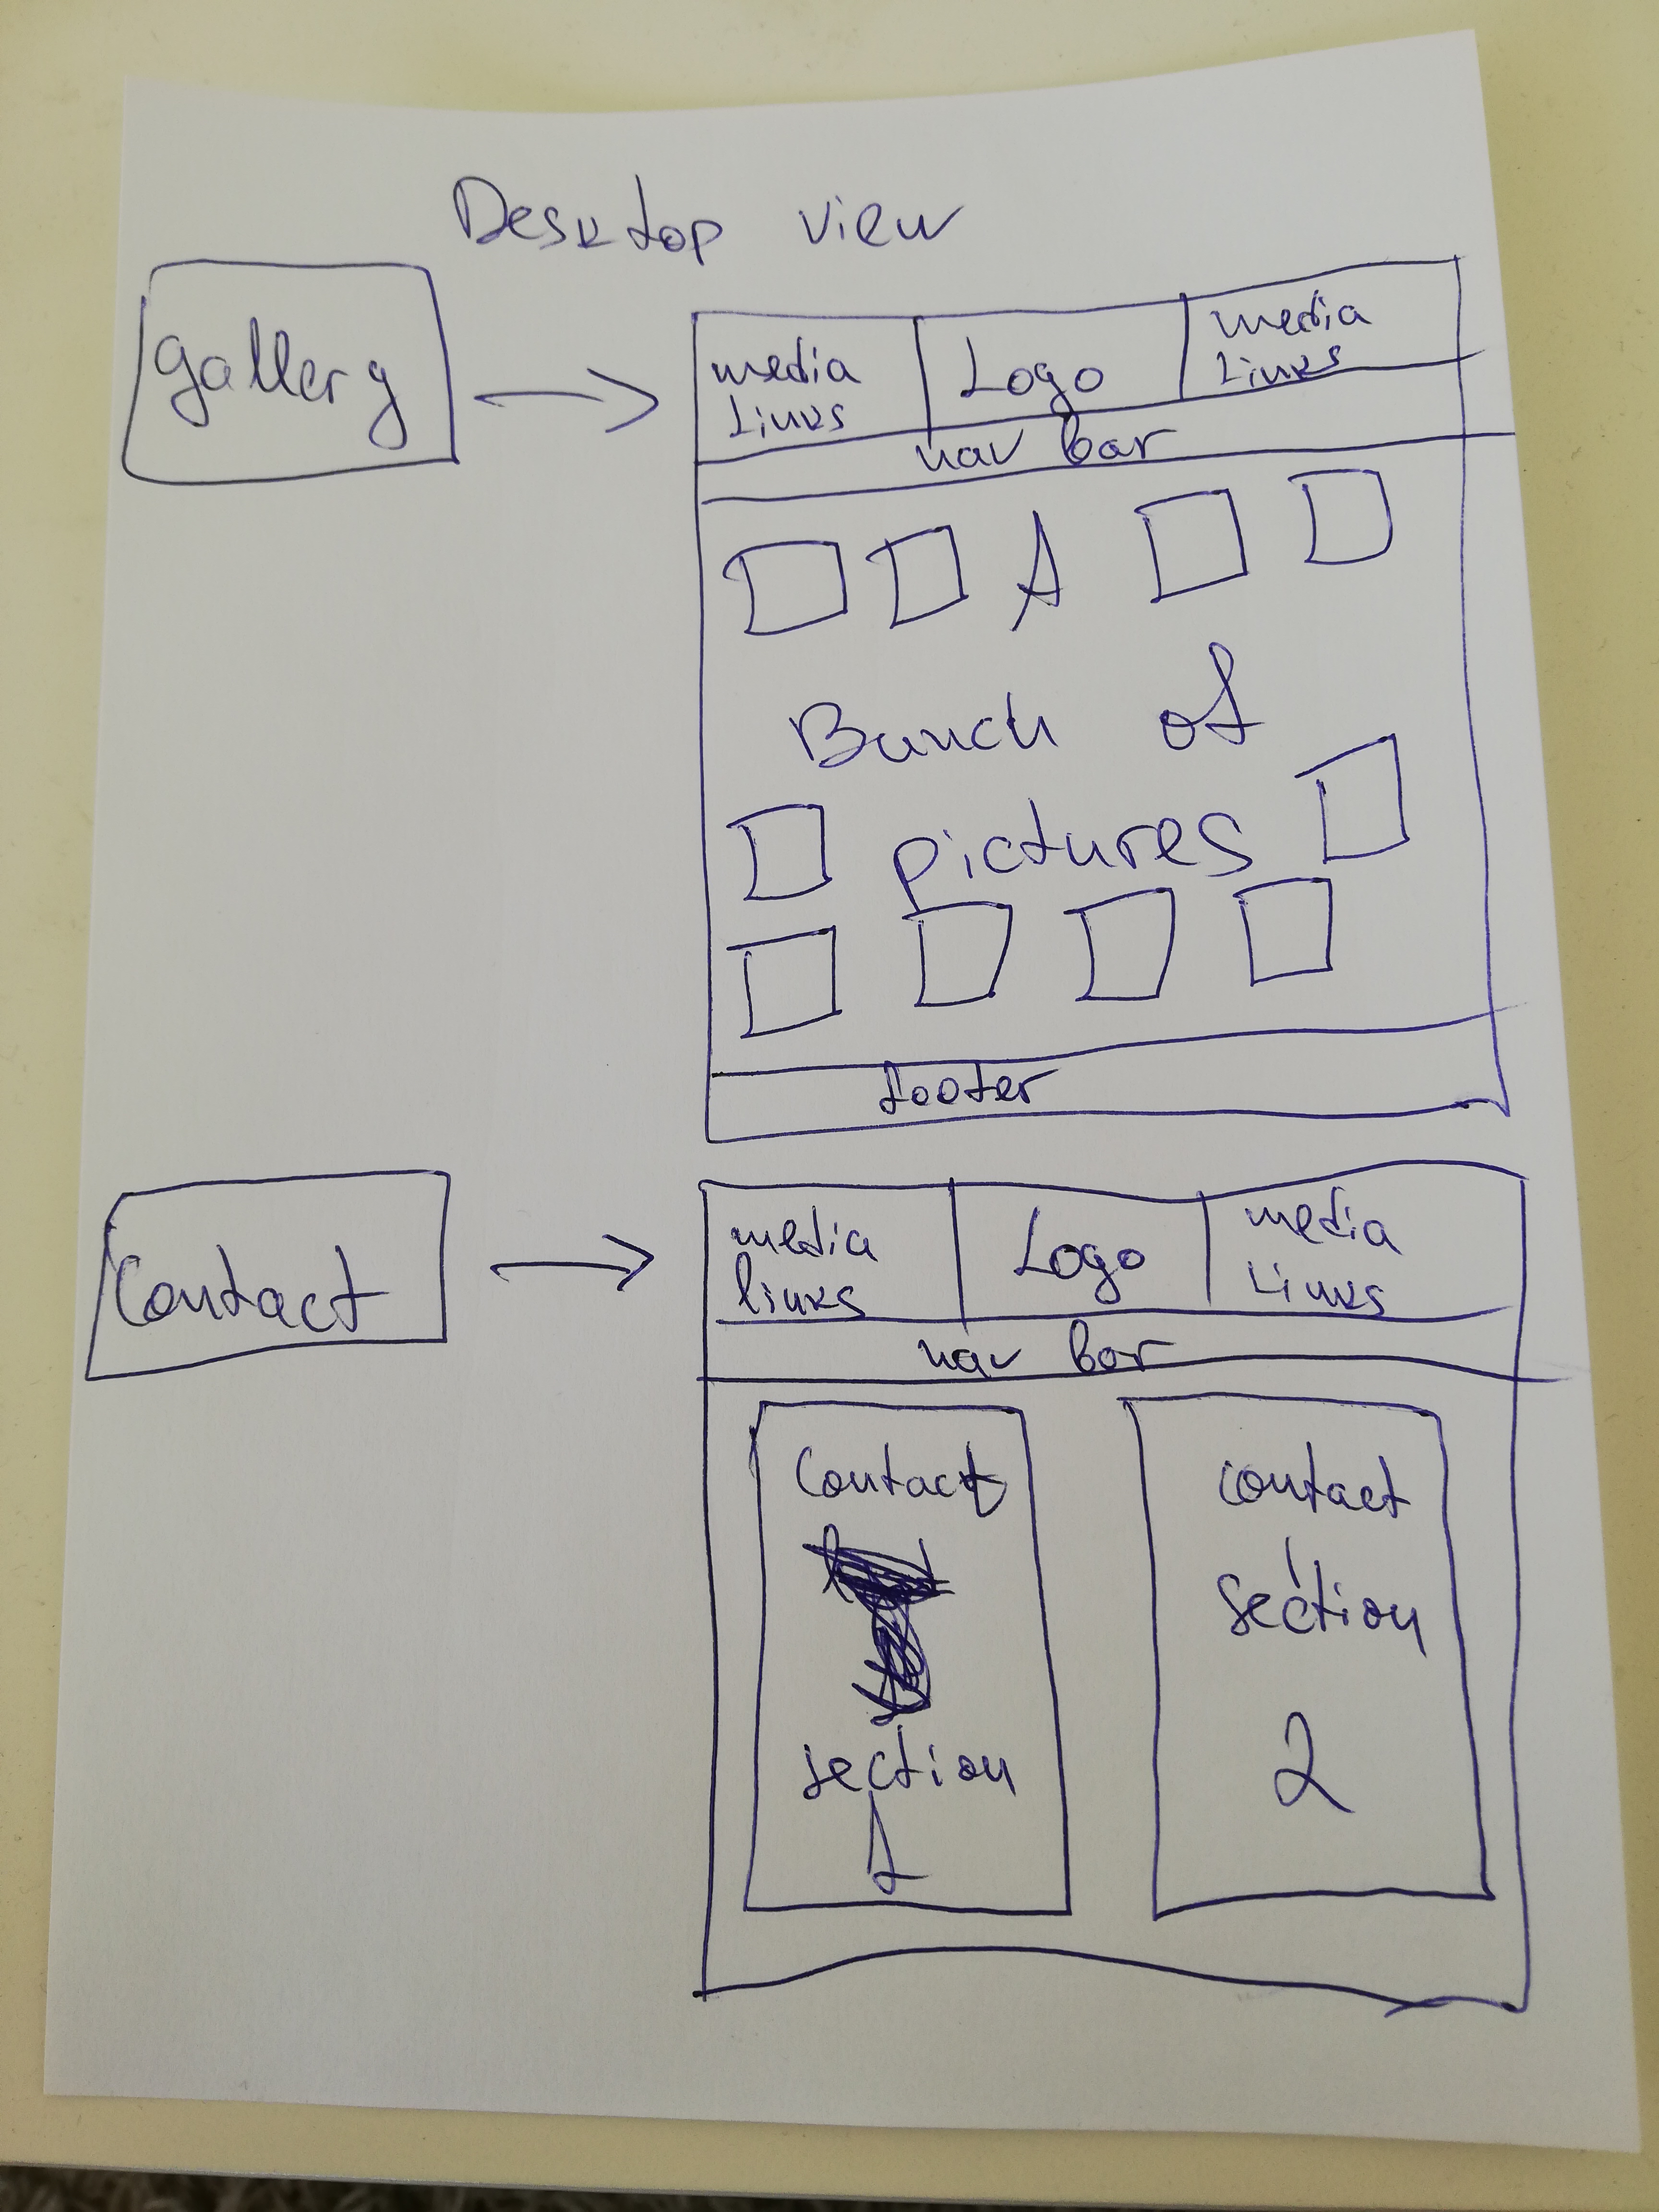 Desktop view
gallery
media
Links
Logo
media
Links
nav bar
A
Bunch of
pictures
footer
Contact
media
links
Logo
media
Links
nav bar
Contact
section
1
contact
section
2